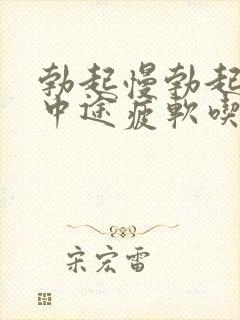 勃起慢勃起
中途疲軟喫
宋宏雷